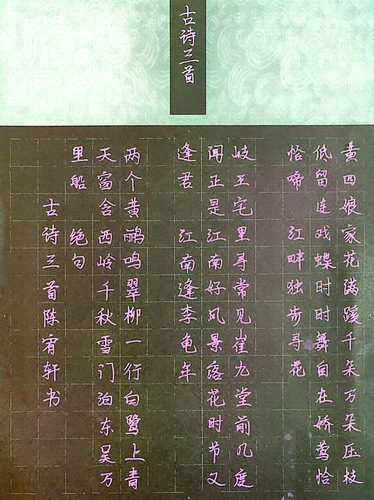 古诗三首
黄四娘家花满蹊千朵万朵压枝
低留连戏蝶时时舞自在娇莺恰
恰啼 江畔独步寻花
岐王宅里寻常见崔九堂前几度
闻正是江南好风景落花时节又
逢君 江南逢李龟年
两个黄鹂鸣翠柳一行白鹭上青
天窗含西岭千秋雪门泊东吴万
里船 绝句
古诗三首陈宥轩书